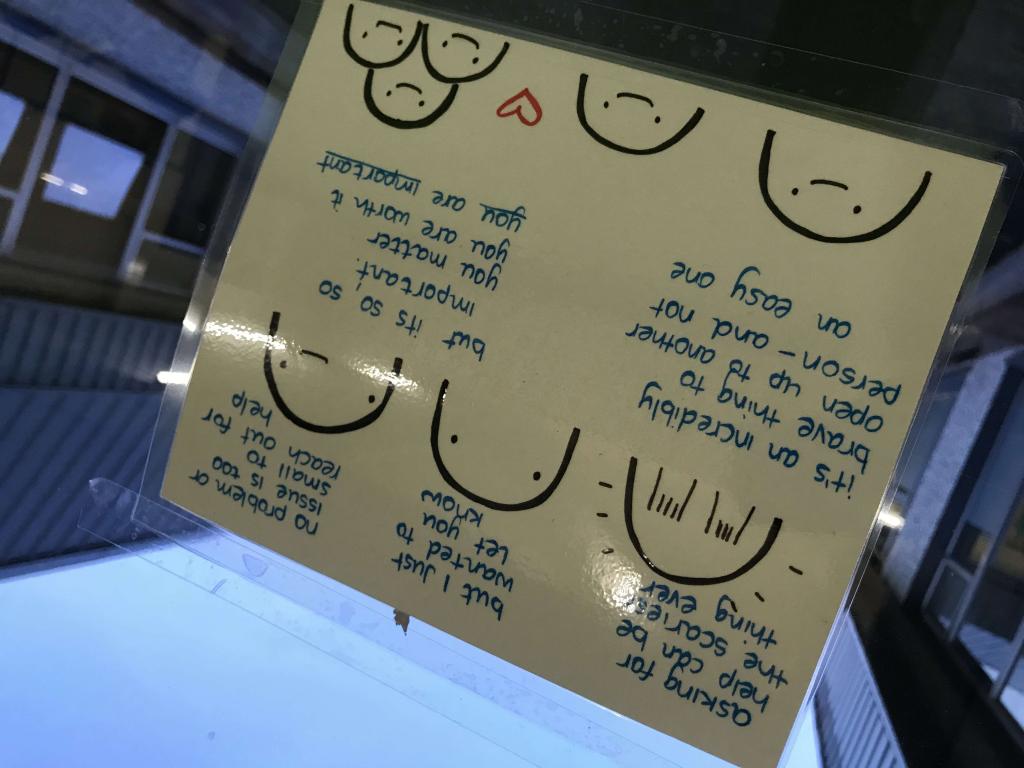 asking for
help can be
the scariest
thing ever
but I just
wanted to
let you
know
no problem or
issue is too
small to
reach out for
help
it's an incredibly
brave thing to
open up to another
person - and not
an easy one
but it's so, so
important.
you matter
you are worth it
you are important